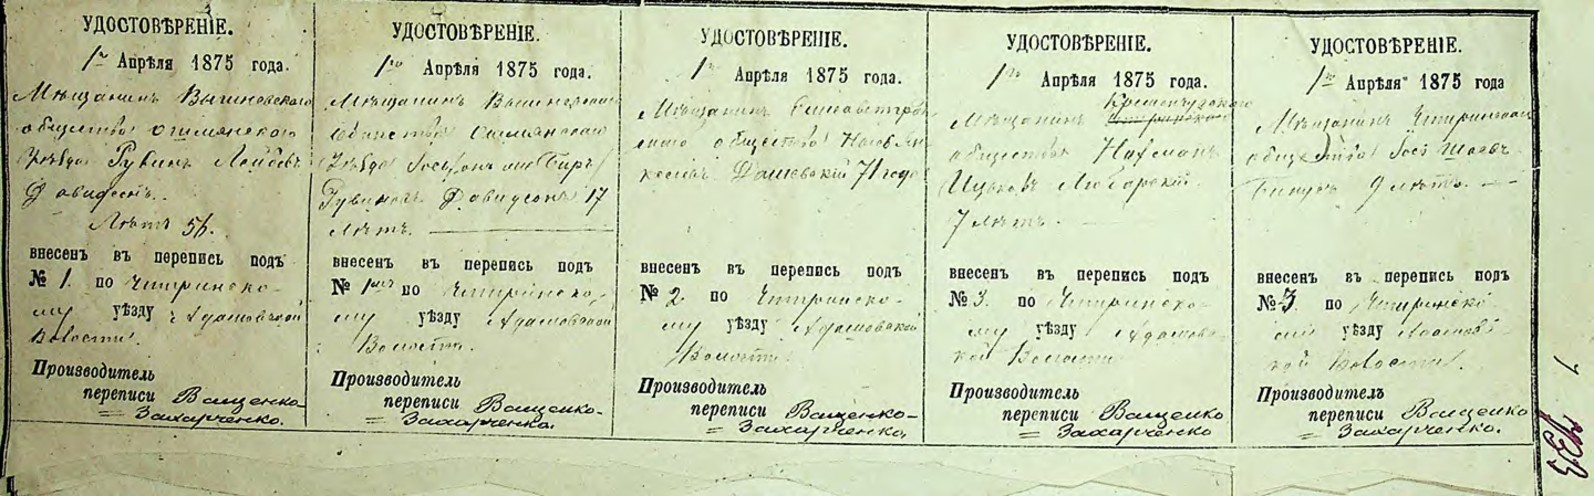 УДОСТОВѢРЕНІЕ.
1го Апрѣля 1875 года.
Мѣщанинъ
общества Ошмянского
Уѣзда Рувинъ Лейбовъ
Давидсонъ.
Лѣтъ 56.
внесенъ въ перепись подъ
№ 1. по Чигиринско-
му уѣзду Адамовской
Волости.
Производитель
переписи Ващенко-
Захарченко.
УДОСТОВѢРЕНІЕ.
1го Апрѣля 1875 года.
Мѣщанинъ
общества Ошмянского
Уѣзда
Рувиновъ Давидсонъ 17
лѣтъ.
внесенъ въ перепись подъ
№ 1 по Чигиринско-
му уѣзду Адамовской
Волости.
Производитель
переписи Ващенко-
Захарченко.
УДОСТОВѢРЕНІЕ.
1го Апрѣля 1875 года.
Мѣщанинъ Елисаветград-
скаго общества
Дашевскій 71 года
внесенъ въ перепись подъ
№ 2. по Чигиринско-
му уѣзду Адамовской
Волости.
Производитель
переписи Ващенко-
Захарченко.
УДОСТОВѢРЕНІЕ.
1го Апрѣля 1875 года.
Кременчугского
Мѣщанинъ Чигиринского
общества Нахманъ
Ицковъ Любарскій
7 лѣтъ.
внесенъ въ перепись подъ
№ 3. по Чигиринско-
му уѣзду Адамовс-
кой Волости
Производитель
переписи Ващенко
Захарченко
УДОСТОВѢРЕНІЕ.
1го Апрѣля 1875 года
Мѣщанинъ Чигиринскаго
общества
9 лѣтъ.
внесенъ въ перепись подъ
№ 3. по Чигиринско
му уѣзду Адамовс
кой Волости.
Производитель
переписи Ващенко
Захарченко.